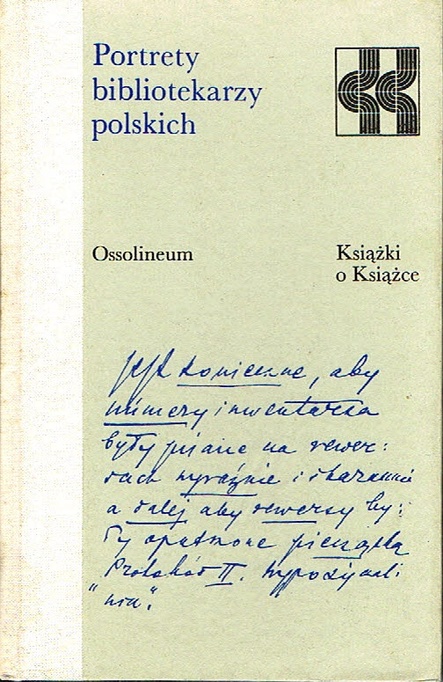 Portrety
bibliotekarzy
polskich
Ossolineum
Książki
o Książce
Jest konieczne, aby
numery inwentarza
były pisane na rewer:
sach wyraźnie i starannie
a dalej aby rewersy by:
ły opatrzone pieczątką
II.